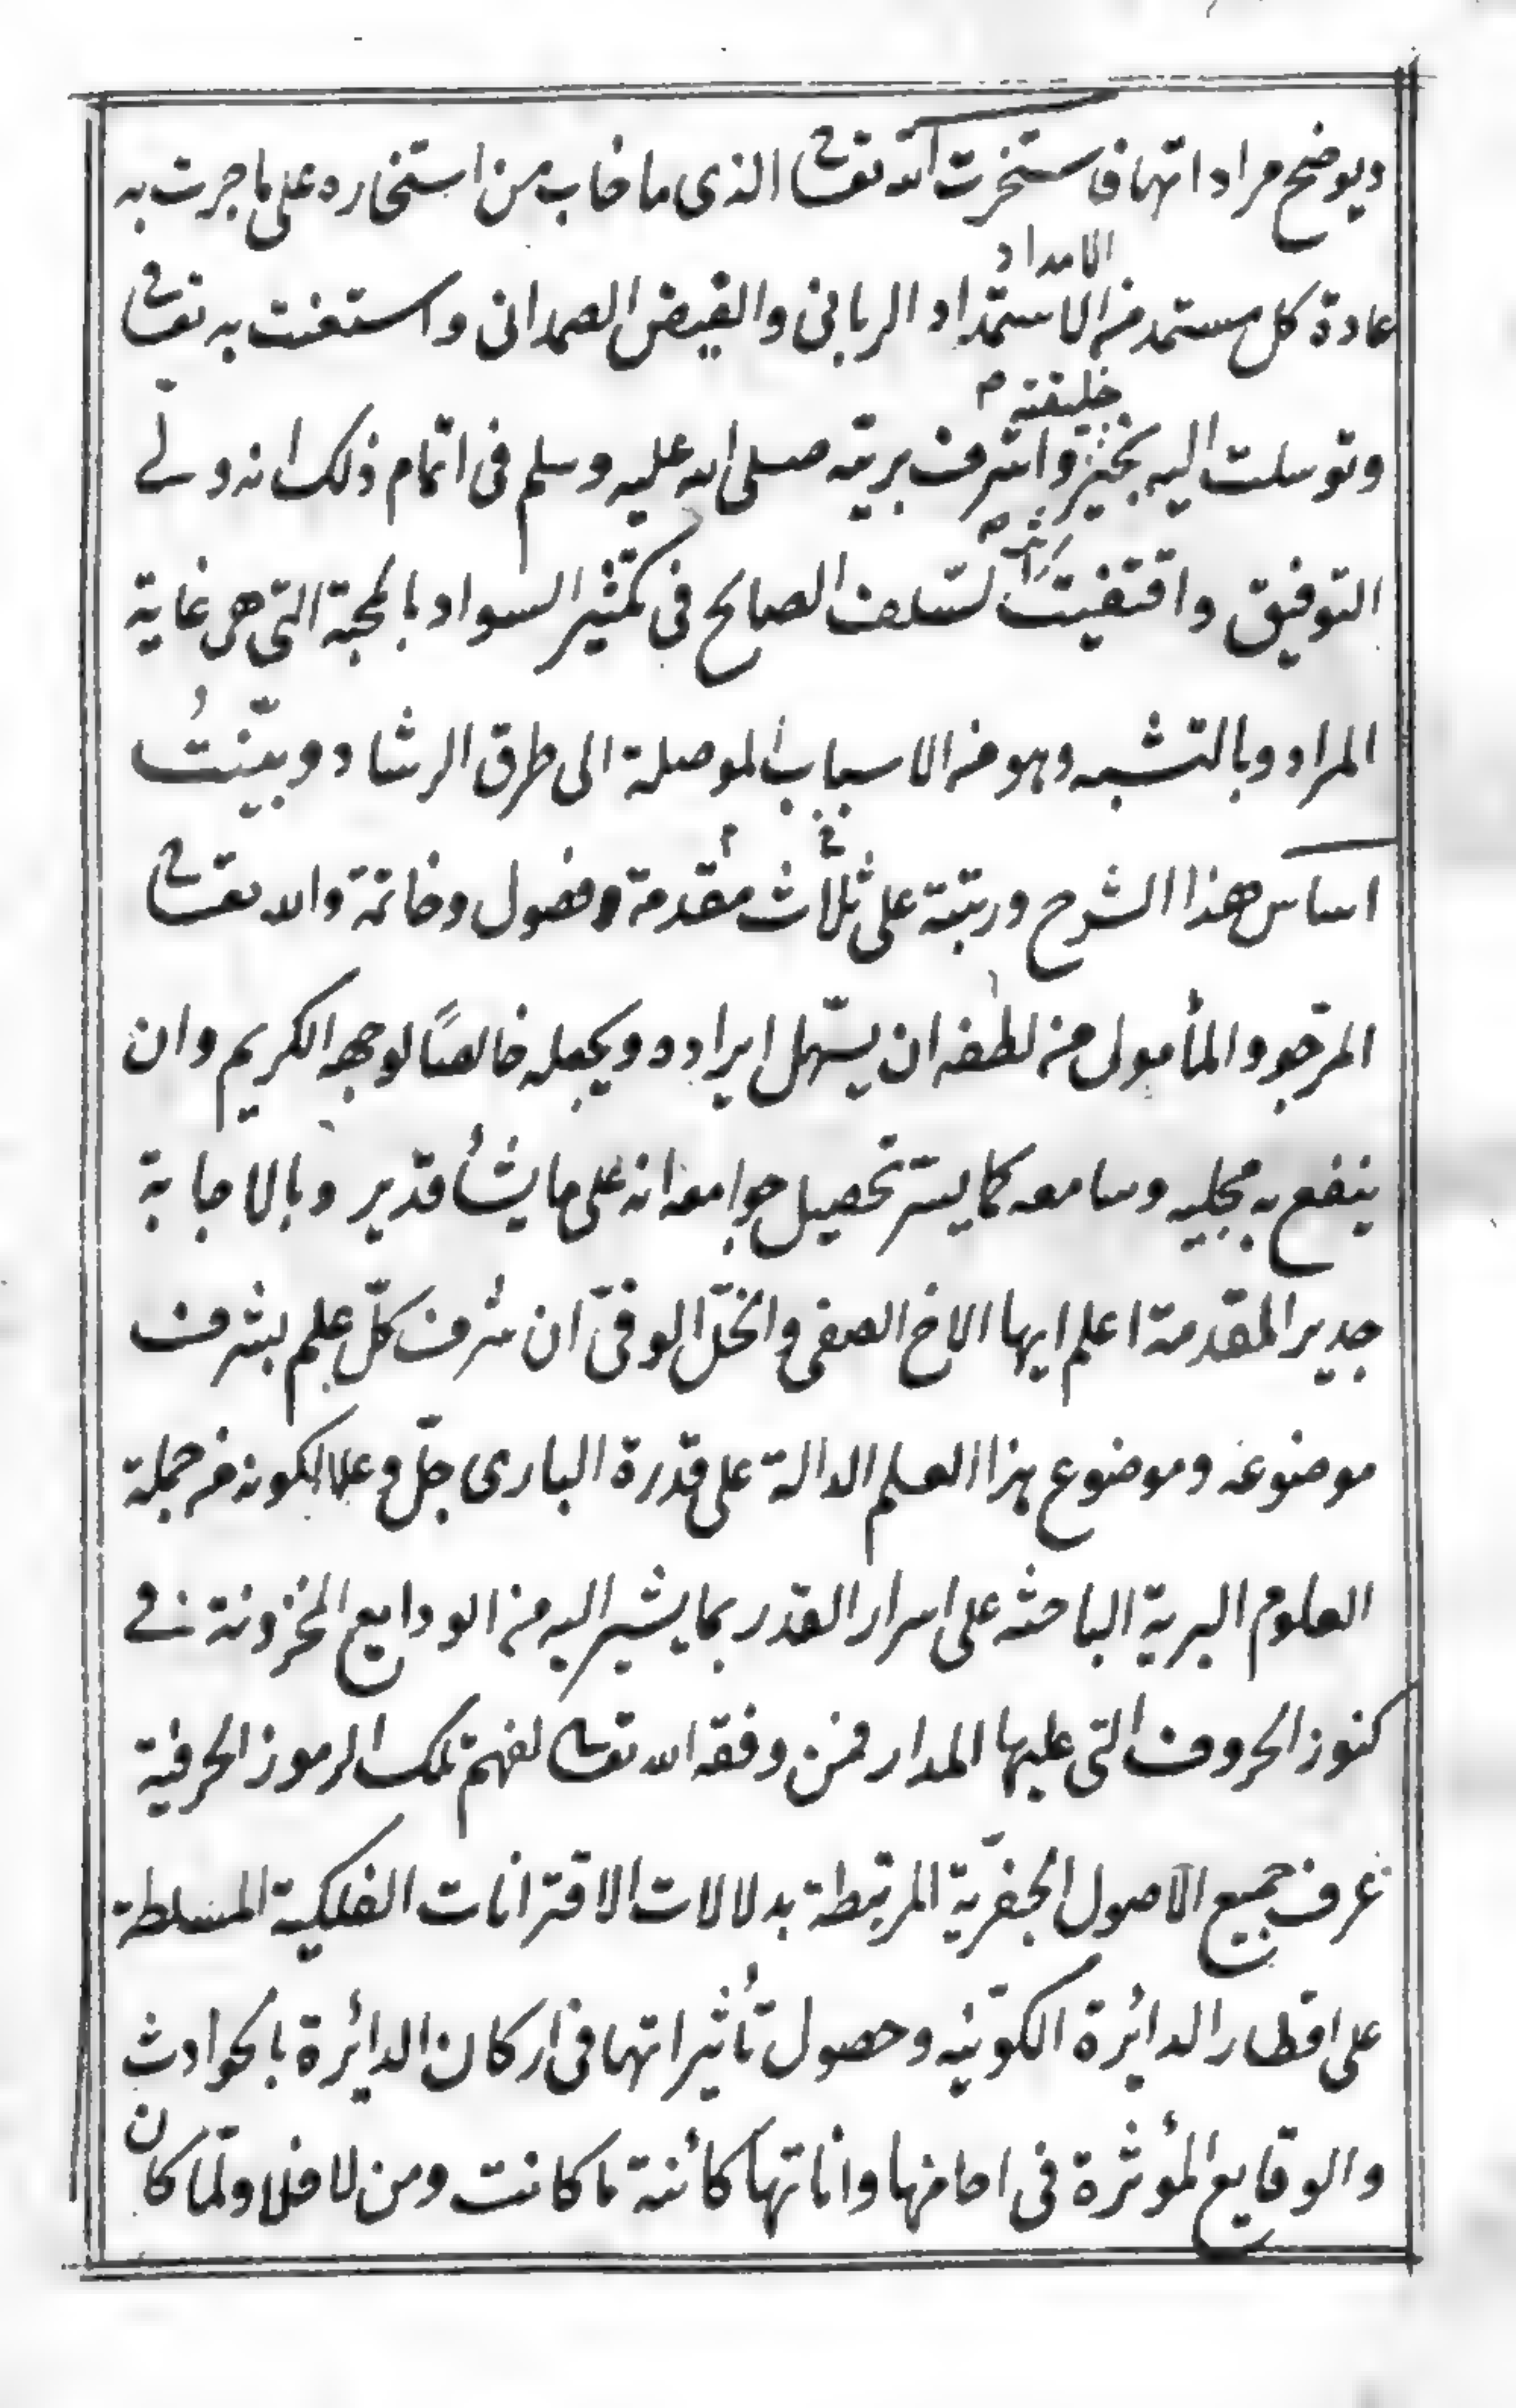 ويوضح مراداتها فاستخرت الله تعالى الذى ما خاب من استخاره على ما جرت به
الامداد
عادة كل مستمد من الاستمداد الربانى والفيض الصمدانى واستعنت به تعالى
خليقته
وتوسلت اليه بخير واشرف بريته صلى الله عليه وسلم فى اتمام ذلك انه ولى
اثر
التوفيق واقتفيت السلف الصالح فى تكثير السواد بالمحبة التى هى غاية
المراد وبالتشبه وهو من الاسباب الموصلة الى طرق الرشاد وبينتُ
اساس هذا الشرح ورتبته على ثلاث مقدمة وفصول وخاتمة والله تعالى
المرجو والمأمول من لطفه ان يسّهل ايراده ويجعله خالصًا لوجهه الكريم وان
ينفع به مجليه وسامعه كما يسر تحصيل جوامعه انه على ما يشأ قدير وبالاجابة
جدير المقدمة اعلم ايها الاخ الصفى والخلّ الوفىّ ان شرف كلّ علم بشرف
موضوعه وموضوع هذا العلم الدالة على قدرة البارى جلّ وعلا لكونه من جملة
العلوم السرية الباحثه على اسرار القدر بما يشير اليه من الودايع المخزونة فى
كنوز الحروف التى عليها المدار فمن وفقه الله تعالى لفهم تلك الرموز الحرفية
عرف جميع الاصول الجفريّة المرتبطة بدلالات الاقترانات الفلكية المسلطة
على اقطار الدائرة الكونيه وحصول تأثيراتها فى اركان الدايرة بالحوادث
والوقايع المؤثرة فى احانها واناتها كائنة ما كانت ومن لا فلا ولما كان